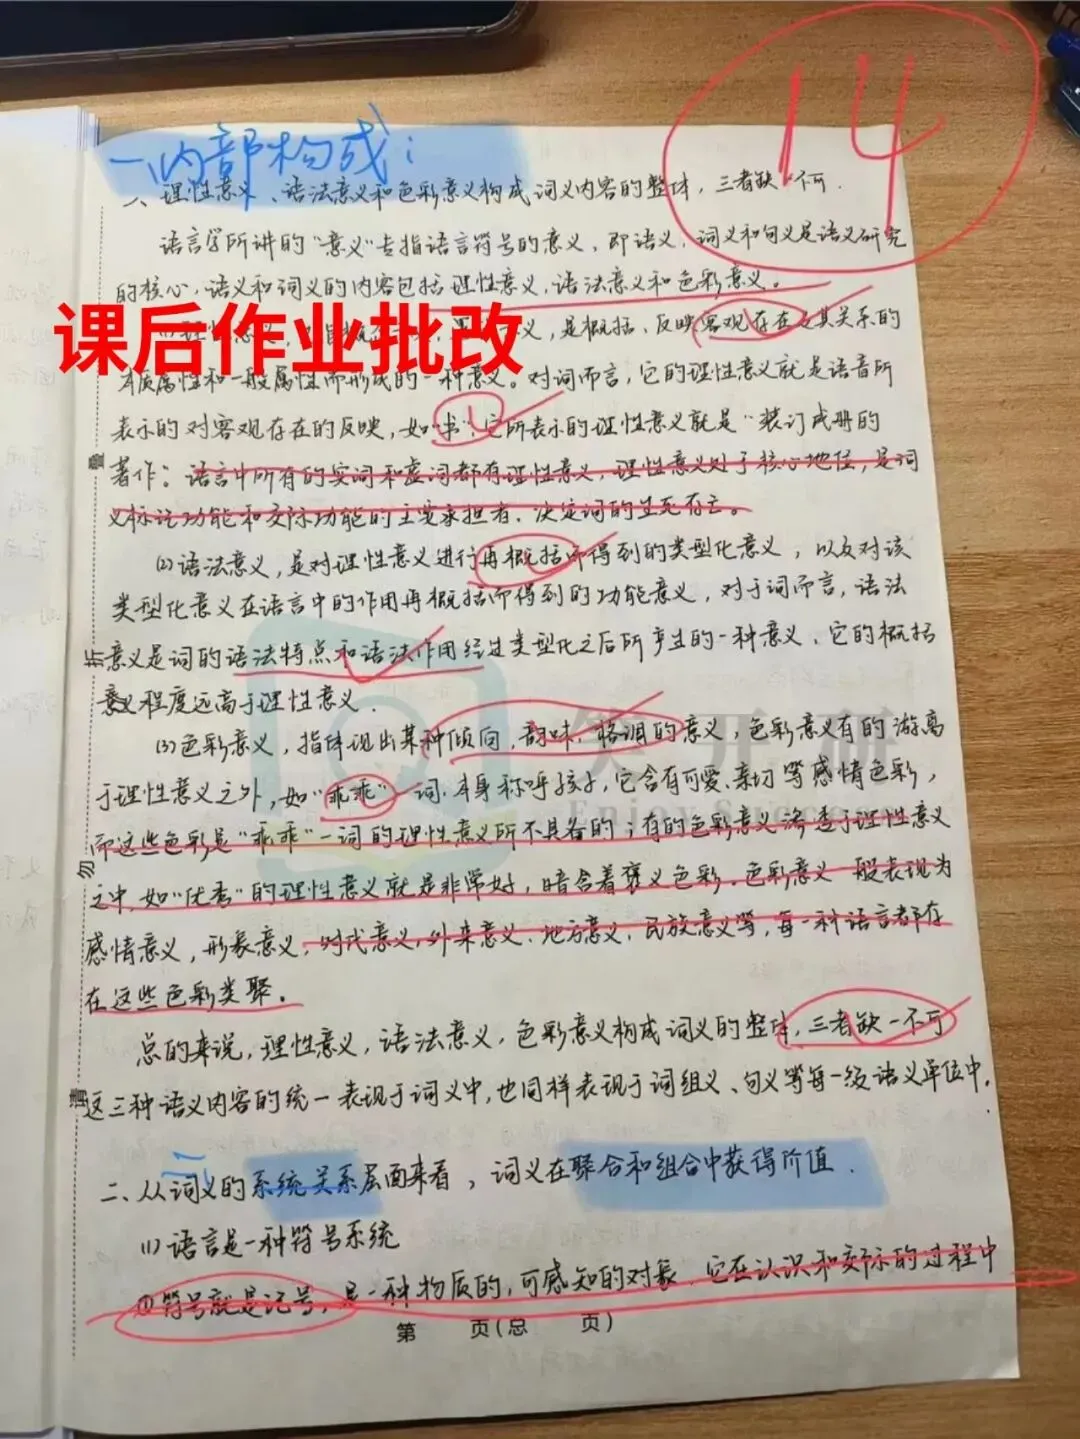 14
一、内部构成：
一、理性意义、语法意义和色彩意义构成词义内容的整体，三者缺一不可.
语言学所讲的“意义”专指语言符号的意义，即语义，词义和句义是语义研究
的核心，语义和词义的内容包括理性意义，语法意义和色彩意义。
课后作业批改
义，是概括、反映客观存在及其关系的
本质属性和一般属性而形成的一种意义。对词而言，它的理性意义就是语音所
表示的对客观存在的反映，如“书”，它所表示的理性意义就是“装订成册的
著作；语言中所有的实词和虚词都有理性意义，理性意义处于核心地位，是词
义标记功能和交际功能的主要承担者，决定词的生死存亡。
(2)语法意义，是对理性意义进行再概括而得到的类型化意义，以及对该
类型化意义在语言中的作用再概括而得到的功能意义，对于词而言，语法
意义是词的语法特点和语法作用经过类型化之后所产生的一种意义，它的概括
意义程度远高于理性意义.
(3)色彩意义，指体现出某种倾向，韵味，格调的意义，色彩意义有的游离
于理性意义之外，如“乖乖”一词，本身称呼孩子，它含有可爱、亲切等感情色彩，
而这些色彩是“乖乖”一词的理性意义所不具备的；有的色彩意义渗透于理性意义
之中，如“优秀”的理性意义就是非常好，暗含着褒义色彩。色彩意义一般表现为
感情意义，形象意义，时代意义，外来意义、地方意义，民族意义等，每一种语言都存
在这些色彩类聚。
总的来说，理性意义，语法意义，色彩意义构成词义的整体，三者缺一不可
这三种语义内容的统一表现于词义中，也同样表现于词组义、句义等每一级语义单位中.
二、从词义的系统关系层面来看，词义在聚合和组合中获得价值.
(1)语言是一种符号系统
①符号就是记号，是一种物质的，可感知的对象，它在认识和交际的过程中
第 页(总 页)
笑开研
Enjoy Success